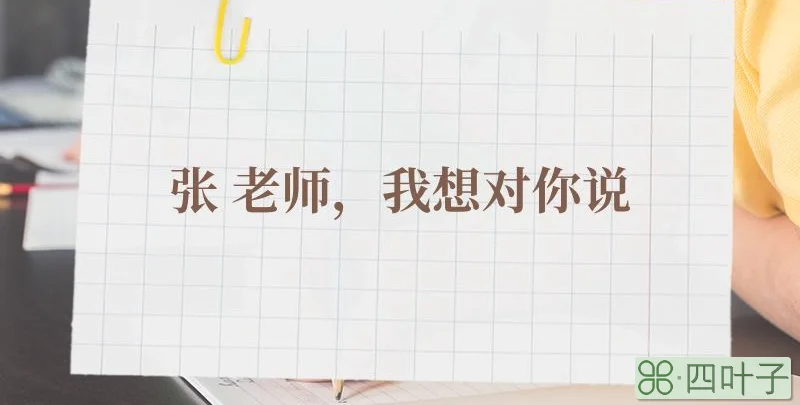 张 老师，我想对你说
⌘·四叶子